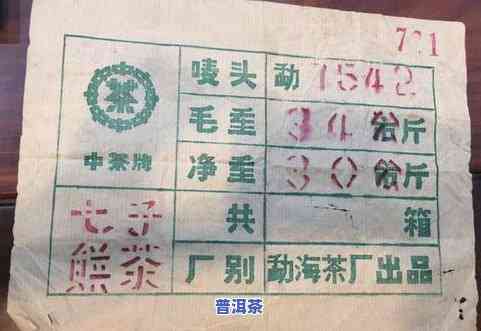 721
唛头 勐 7542
毛重 34 公斤
中茶牌 净重 30 公斤
七子 共 箱
饼茶 厂别 勐海茶厂出品
普洱茶